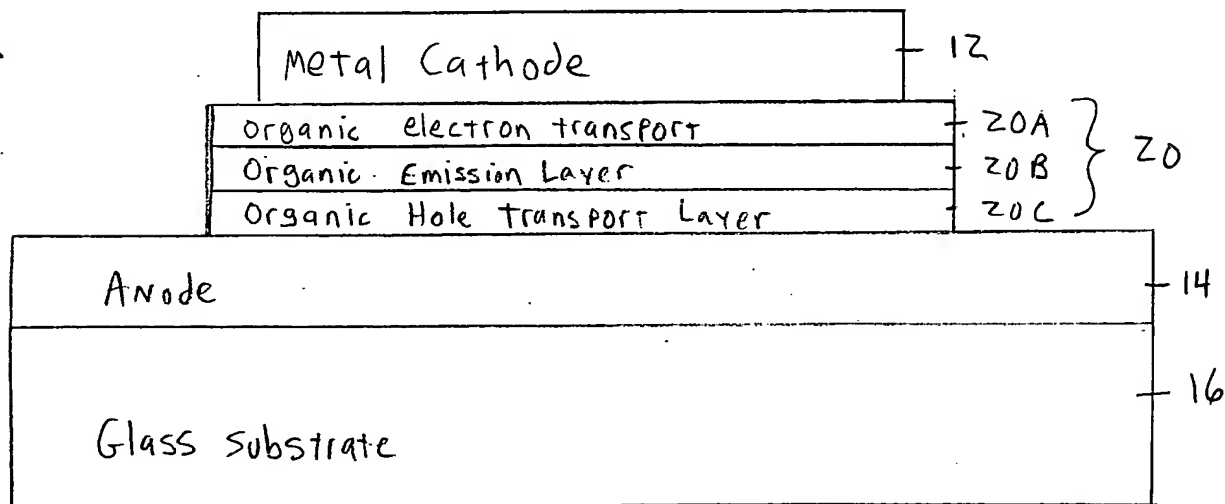 Metal Cathode 12
Organic electron transport 20A
Organic Emission Layer 20B 20
Organic Hole Transport Layer 20C
Anode 14
16
Glass Substrate